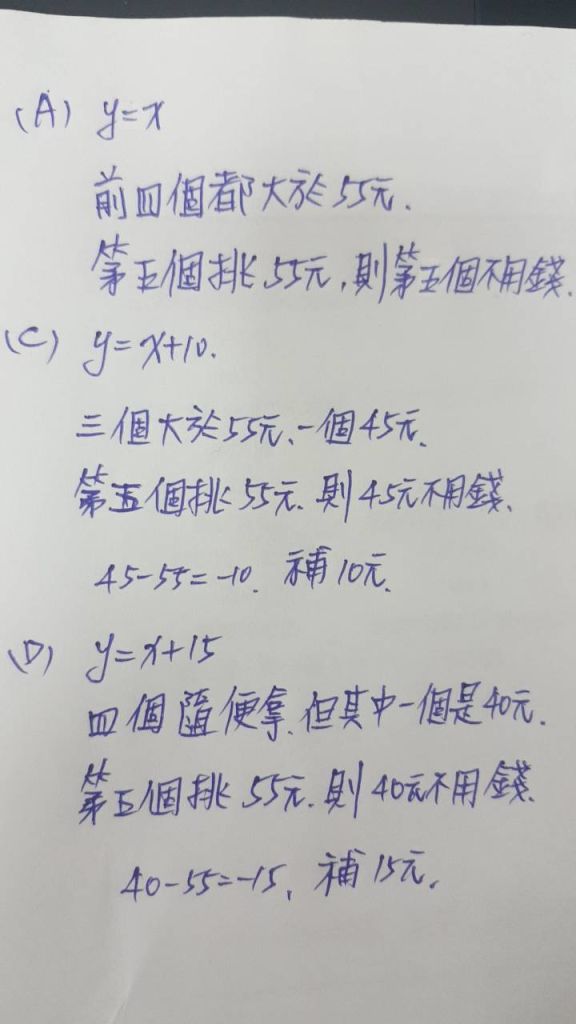 (A) y=x
前四個都大於55元.
第五個挑55元,則第五個不用錢.
(C) y=x+10.
三個大於55元、一個45元.
第五個挑55元.則45元不用錢.
45-55=-10. 補10元.
(D) y=x+15
四個隨便拿.但其中一個是40元.
第五個挑55元.則40元不用錢.
40-55=-15、補15元.